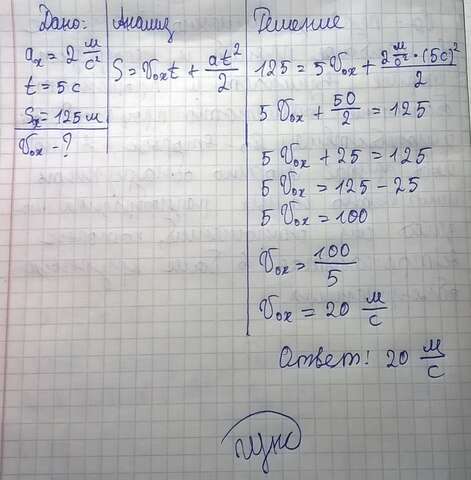 Дано:
aₓ = 2 м/с²
t = 5 с
Sₓ = 125 м
v₀ₓ - ?
Анализ
S = v₀ₓt + at²/2
Решение
125 = 5v₀ₓ + 2 м/с² · (5с)²/2
5v₀ₓ + 50/2 = 125
5v₀ₓ + 25 = 125
5v₀ₓ = 125 - 25
5v₀ₓ = 100
v₀ₓ = 100/5
v₀ₓ = 20 м/с
Ответ: 20 м/с